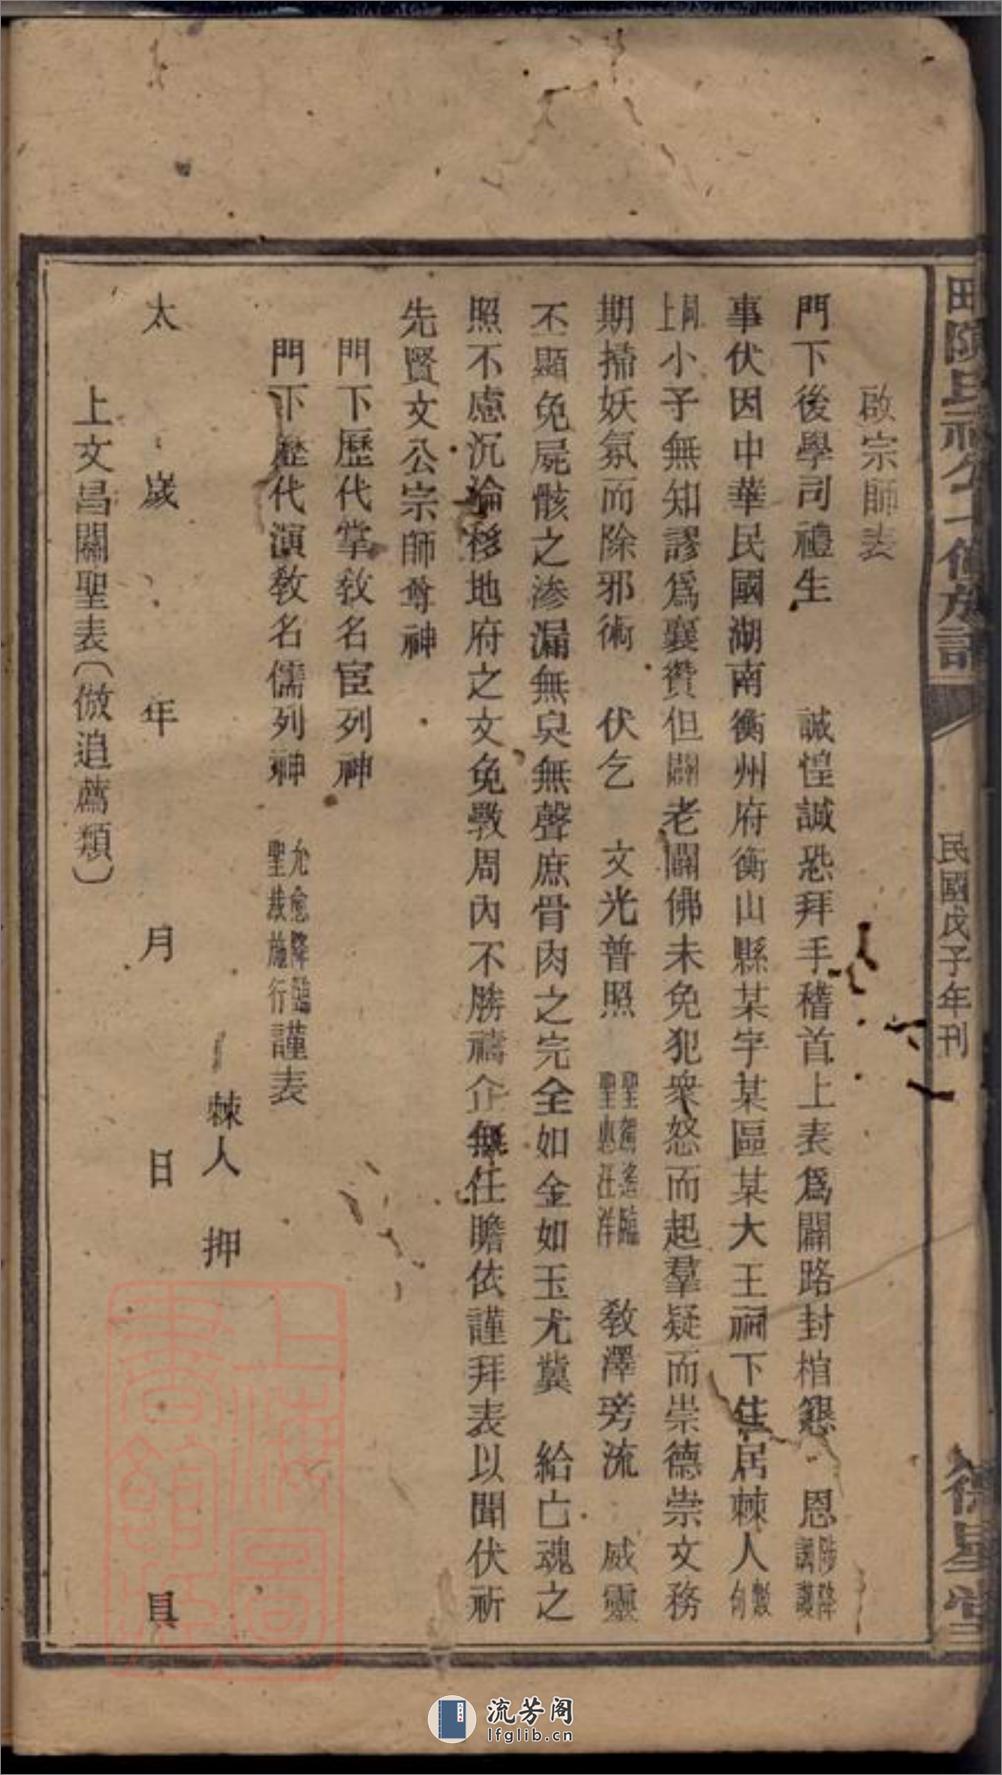 啟宗師表
門下後學司禮生　誠惶誠恐拜手稽首上表爲闢路封棺懇　恩陟降調護
事伏因中華民國湖南衡州府衡山縣某字某區某大王祠下住居棘人數句
同上小子無知謬爲襄贊但闢老闢佛未免犯衆怒而起羣疑而崇德崇文務
期掃妖氛而除邪術　伏乞　文光普照　聖駕遙臨聖惠汪洋　敎澤旁流　威靈
丕顯免屍骸之滲漏無臭無聲庶骨肉之完全如金如玉尤冀　給亡魂之
照不慮沉淪移地府之文免斁周內不勝禱企無任瞻依謹拜表以聞伏祈
先賢文公宗師尊神
門下歷代掌敎名宦列神
門下歷代演敎名儒列神　允愈降臨聖裁施行謹表
棘人　押
太歲　年　月　日　具
上文昌關聖表（倣追薦類）
民國戊子年刊
德星堂
上海圖書館藏
流芳阁
lfglib.cn